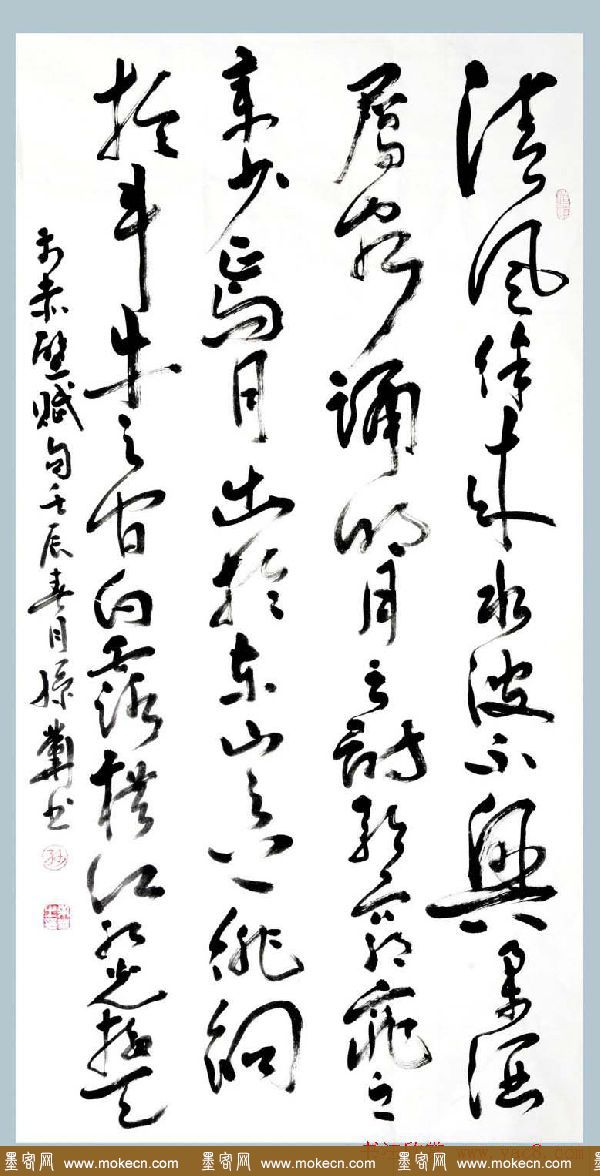 清風徐来水波不興举酒
属客誦明月之詩歌窈窕之
章少焉月出於東山之上徘徊
於斗牛之间白露横江水光接天
前赤壁赋句壬辰春月孫书
书法欣赏 www.yac8.com
www.mokecn.com 墨客网 www.mokecn.com 墨客网 www.mokecn.com 墨客网